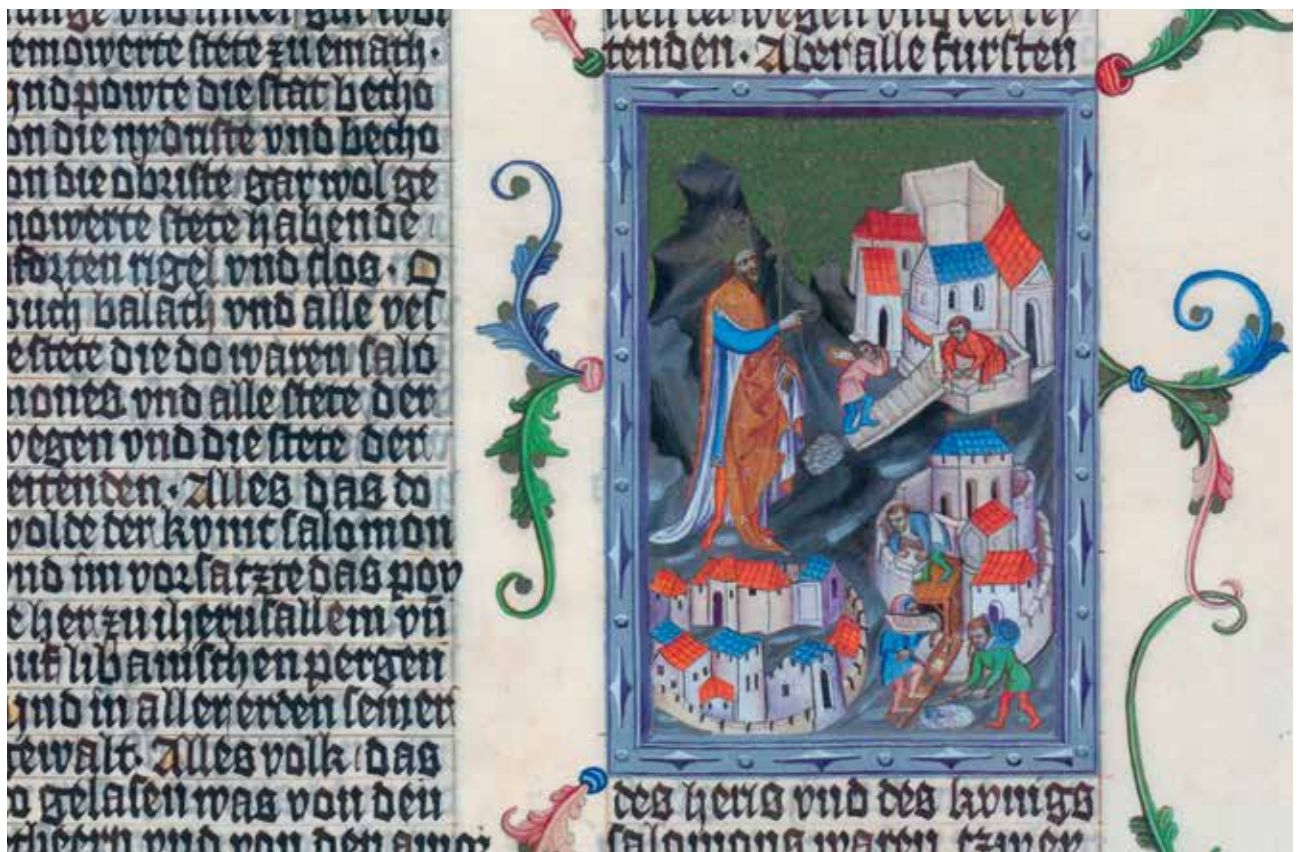 gemowerte stete zu emath.
vnd powte die stat betho
on die nydriste vnd betho
on die obriste gar wol ge
mowerte stete habende
pforten rigel vnd slos. O
uch balath vnd alle ves
te stete die do waren salo
mones. vnd alle stete der
wegen vnd die stete der
reitenden. Alles das do
wolde der kvnic salomon
vnd im vorsatzte das pow
te her zu iherusallem vn
auf libanischen pergen
vnd in aller erden seiner
gewalt. Alles volk das
do gelasen was von den
ten der wegen vnd der rey
tenden. Aber alle fursten
des hers vnd des kvnigs
salomons waren czwey